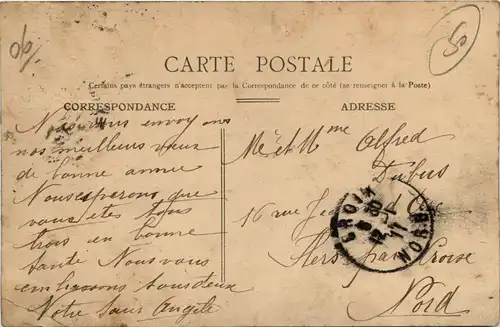 CARTE POSTALE
Certains pays étrangers n'acceptent pas la Correspondance de ce côté (se renseigner à la Poste)
CORRESPONDANCE
ADRESSE
Nous vous envoy ons
nos meilleurs vœux
de bonne année
Nous esperons que
vous êtes tous
trois en bonne
sante Nous vous
embrassons tous deux
Votre sœur Angèle
Mr et Mme Alfred
Dubus
16 rue Jean
Flers par Croix
Nord
CROIX
NORD